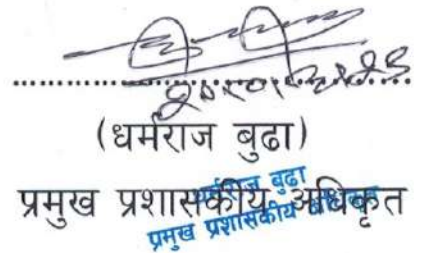 (धर्मराज बुढा)
प्रमुख प्रशासकीय अधिकृत
धर्मराज बुढा
प्रमुख प्रशासकीय अधिकृत